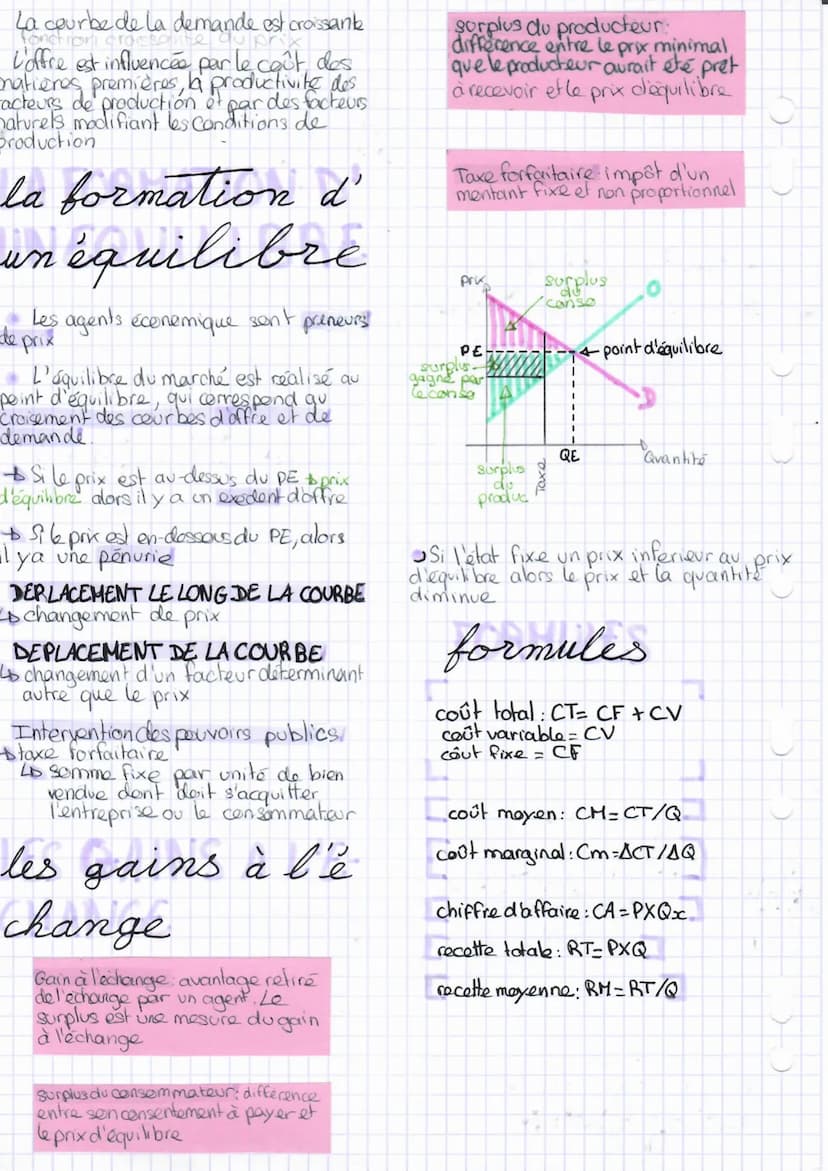 La courbe de la demande est croissante
fonction croissante du prix
L'offre est influencée par le coût des
matières premières, la productivité des
facteurs de production et par des facteurs
naturels modifiant les conditions de
production
la formation d'
un équilibre
Les agents économique sont preneurs
de prix
L'équilibre du marché est réalisé au
point d'équilibre, qui correspond au
croisement des courbes d'offre et de
demande.
→ Si le prix est au-dessus du PE → prix
d'équilibre alors il y a un exedent d'offre
→ Si le prix est en-dessous du PE, alors
il y a une pénurie
DEPLACEMENT LE LONG DE LA COURBE
↳ changement de prix
DEPLACEMENT DE LA COURBE
↳ changement d'un facteur déterminant
autre que le prix
Intervention des pouvoirs publics
↳ taxe forfaitaire
↳ somme fixe par unité de bien
vendue dont doit s'acquitter
l'entreprise ou le consommateur
les gains à l'é
change
Gain à l'échange : avantage retiré
de l'échange par un agent. Le
surplus est une mesure du gain
à l'échange
Surplus du consommateur : différence
entre son consentement à payer et
le prix d'équilibre
surplus du producteur :
différence entre le prix minimal
que le producteur aurait été prêt
à recevoir et le prix d'équilibre
Taxe forfaitaire : impôt d'un
montant fixe et non proportionnel
Prix
surplus
du
conso
O
PE
point d'équilibre
surplus
gagné par
le conso
D
QE
Quantité
Taxe
surplus
du
produc
Si l'état fixe un prix inferieur au prix
d'équilibre alors le prix et la quantité
diminue
formules
coût total : CT = CF + CV
coût variable = CV
côut fixe = CF
coût moyen : CM = CT/Q
coût marginal : Cm = ΔCT/ΔQ
chiffre d'affaire : CA = PXQx
recette totale : RT = PXQ
recette moyenne : RM = RT/Q